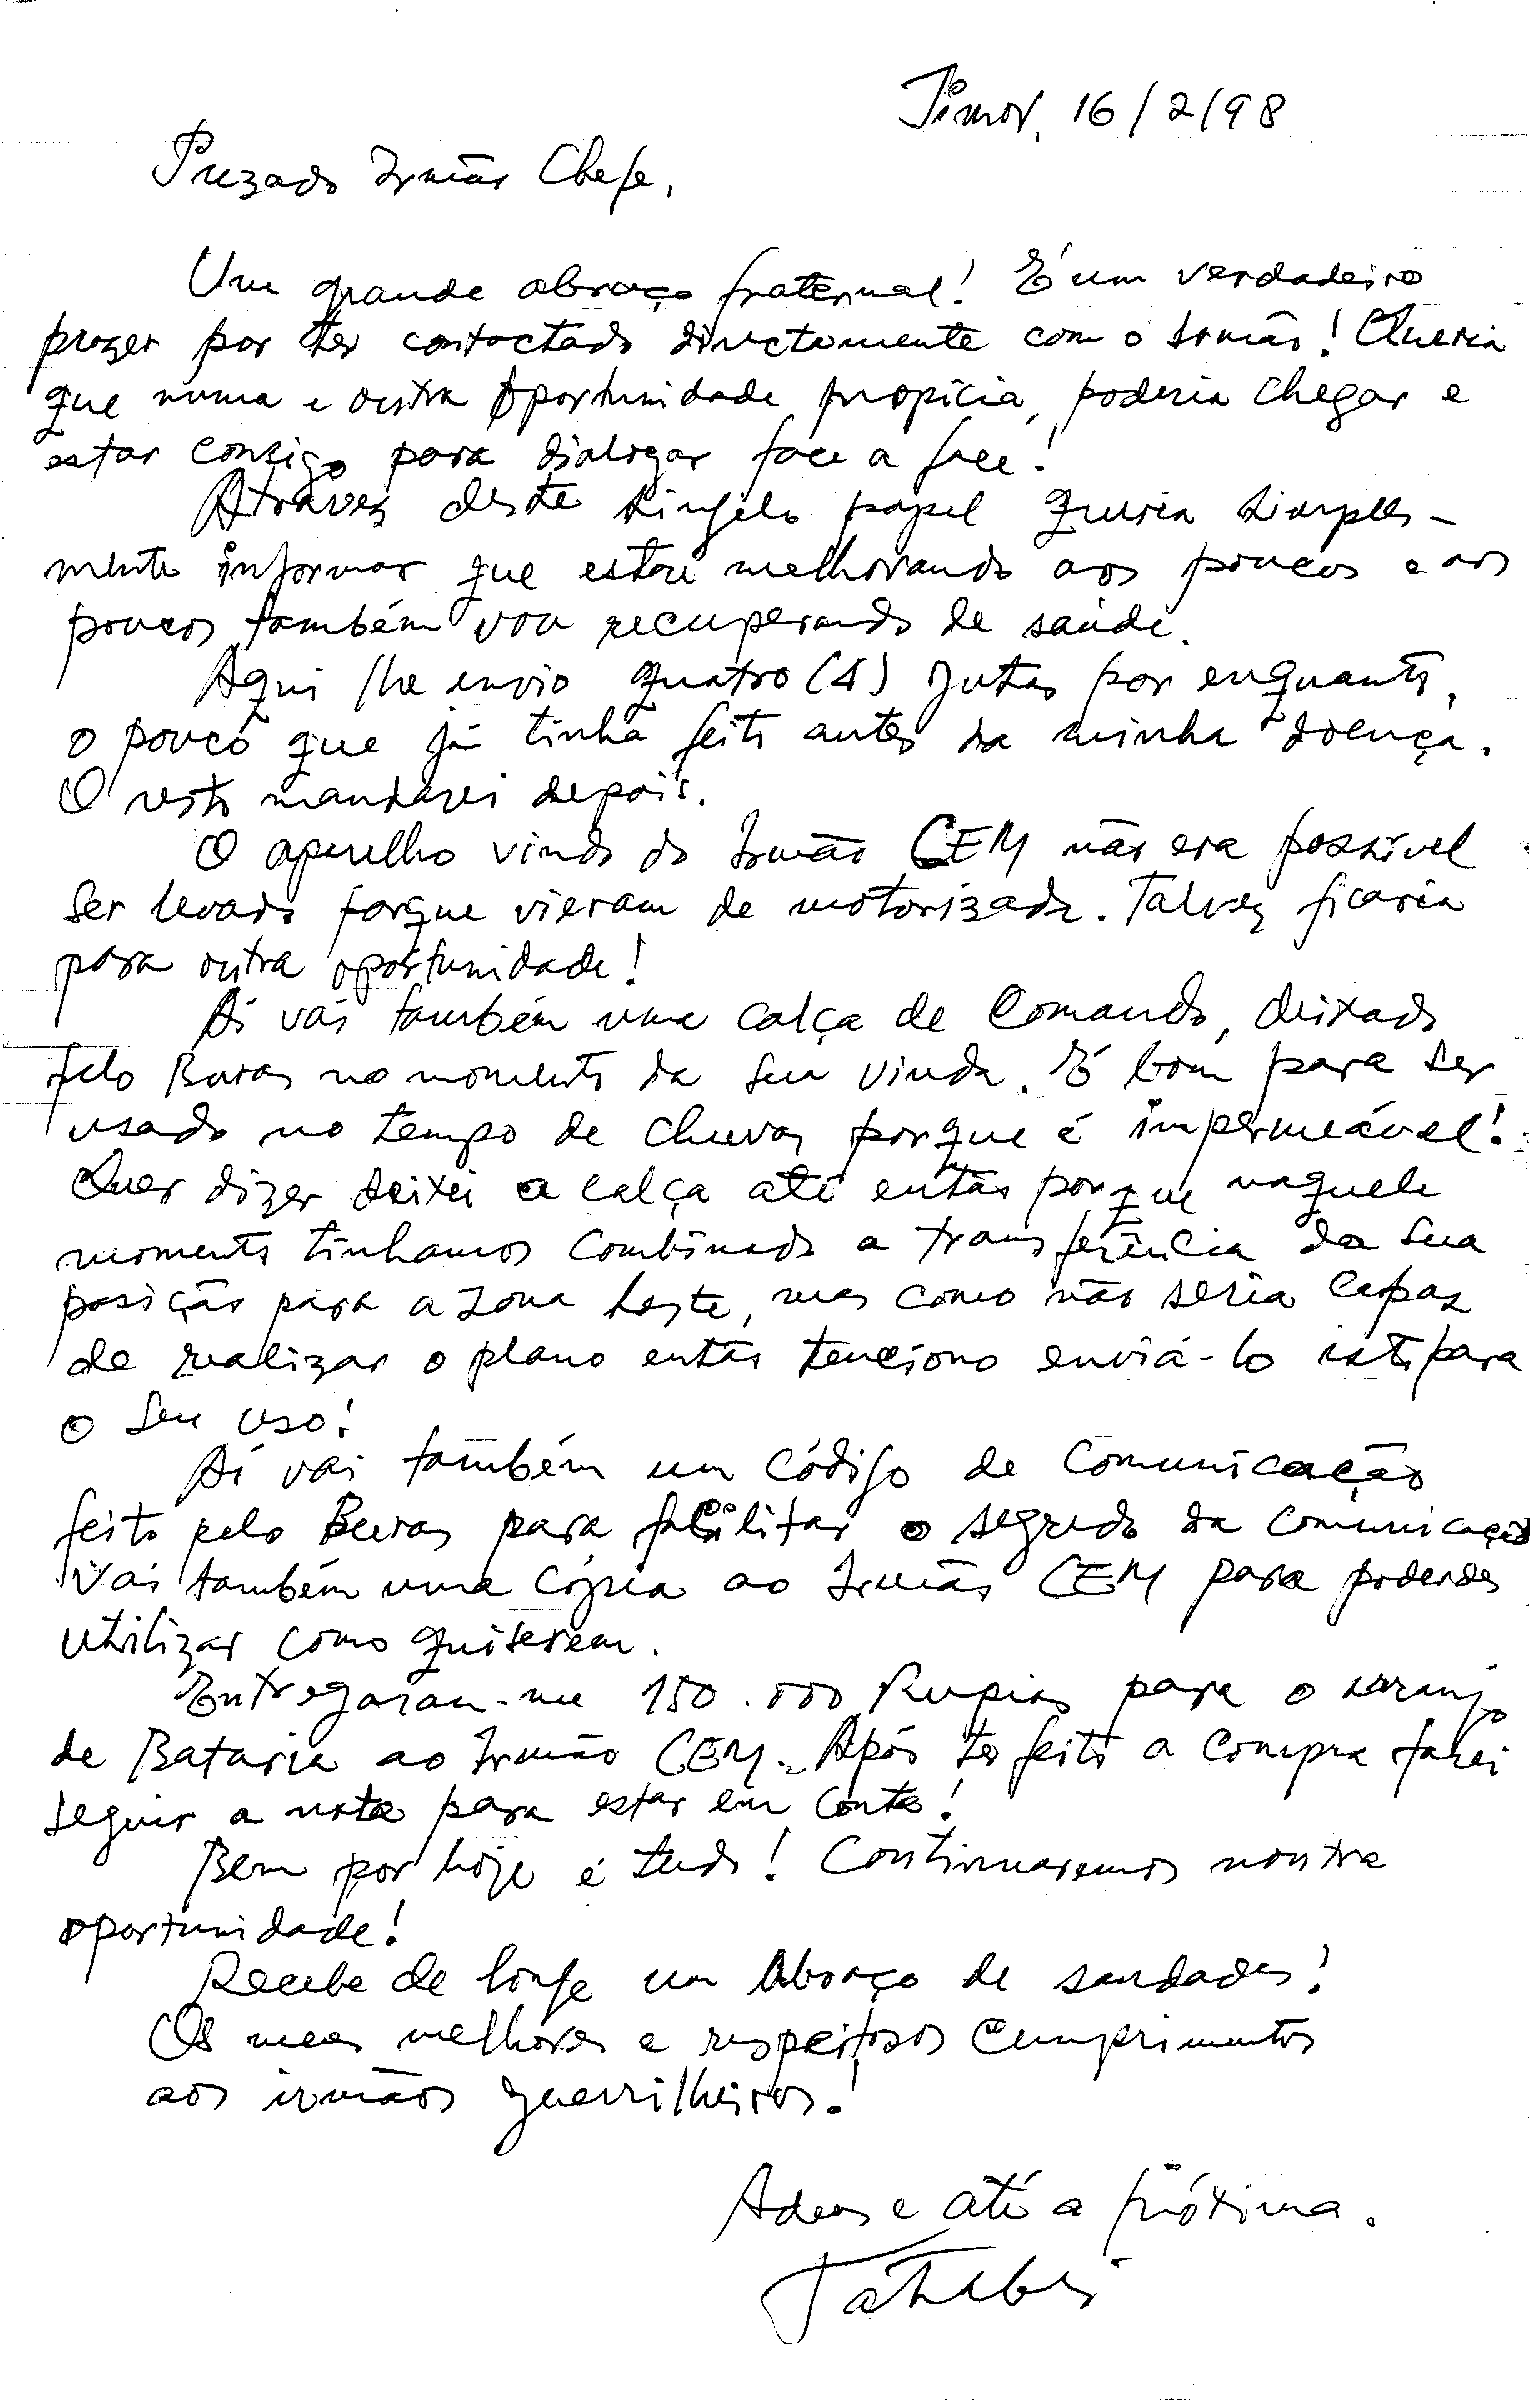 Timor, 16/2/98
Prezado Irmão Chefe,
Um grande abraço fraternal! É um verdadeiro
prazer por ter contactado directamente com o Irmão! Queria
que numa e outra oportunidade propícia, poderia chegar e
estar consigo para dialogar face a face!
Através deste singelo papel queria simples-
mente informar que estou melhorando aos poucos e aos
poucos também vou recuperando de saúde.
Aqui lhe envio quatro (4) por enquanto,
o pouco que já tinha feito antes da minha doença.
O resto mandarei depois.
O aparelho vindo do Irmão CEM não era possível
ser levado porque vieram de motorizada. Talvez ficaria
para outra oportunidade!
Aí vai também uma calça de Comando, deixado
pelo no momento da sua vinda. É bom para ser
usado no tempo de chuvas porque é impermeável!
Quer dizer deixei a calça até então porque naquele
momento tinhamos combinado a transferência da sua
posição para a zona leste, mas como não seria capaz
de realizar o plano então tenciono enviá-lo isto para
o seu uso!
Aí vai também um código de comunicação
feito pelo para facilitar o segredo da comunicação
Vai também uma cópia ao Irmão CEM para poderdes
utilizar como quiserem.
Entregaram-me 150.000 Rupias para o arranjo
de Bataria ao Irmão CEM. Após ter feito a compra farei
seguir a nota para estar em conta!
Bem por hoje é tudo! Continuaremos noutra
oportunidade!
Recebe de longe um Abraço de saudades!
Os meus melhores e respeitosos cumprimentos
aos irmãos guerrilheiros!
Adeus e até a próxima.